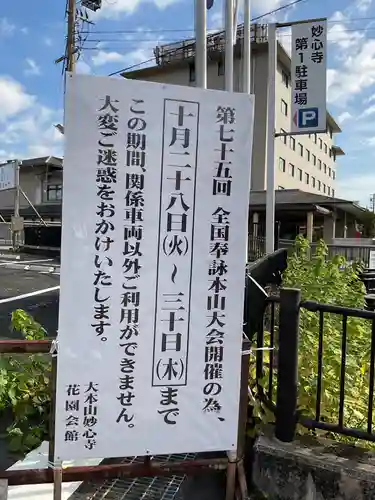 第七十五回　全国奉詠本山大会開催の為、
十月二十八日（火）～三十日（木）まで
この期間、関係車両以外ご利用ができません。
大変ご迷惑をおかけいたします。
大本山妙心寺
花園会館
妙心寺
第1駐車場
P